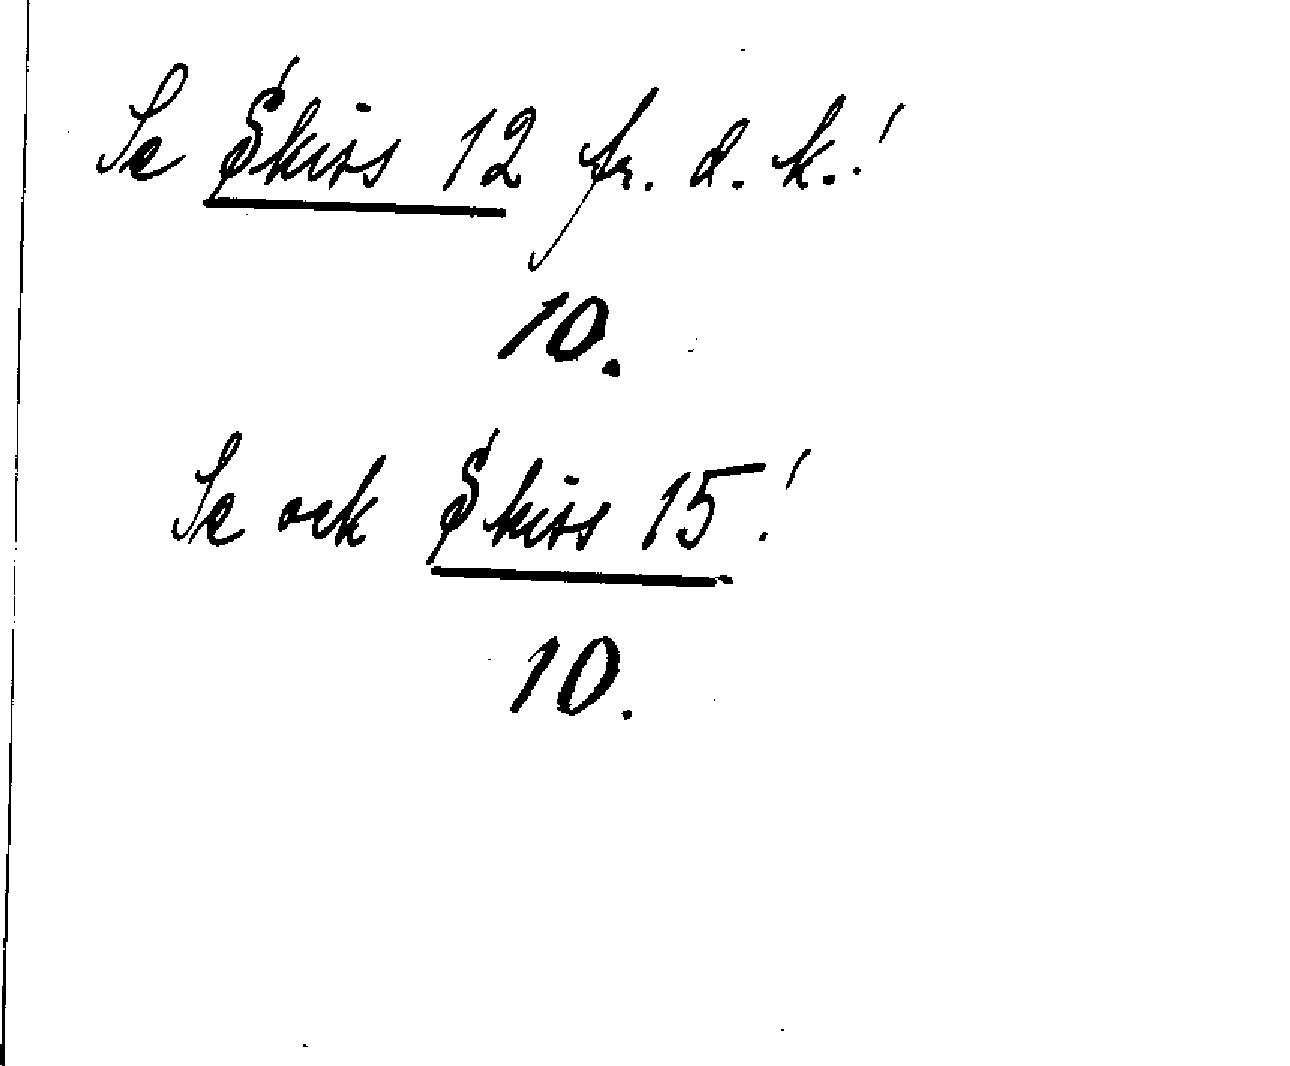 Se Skiss 12 fr. d. k.!
10.
Se ock Skiss 15!
10.